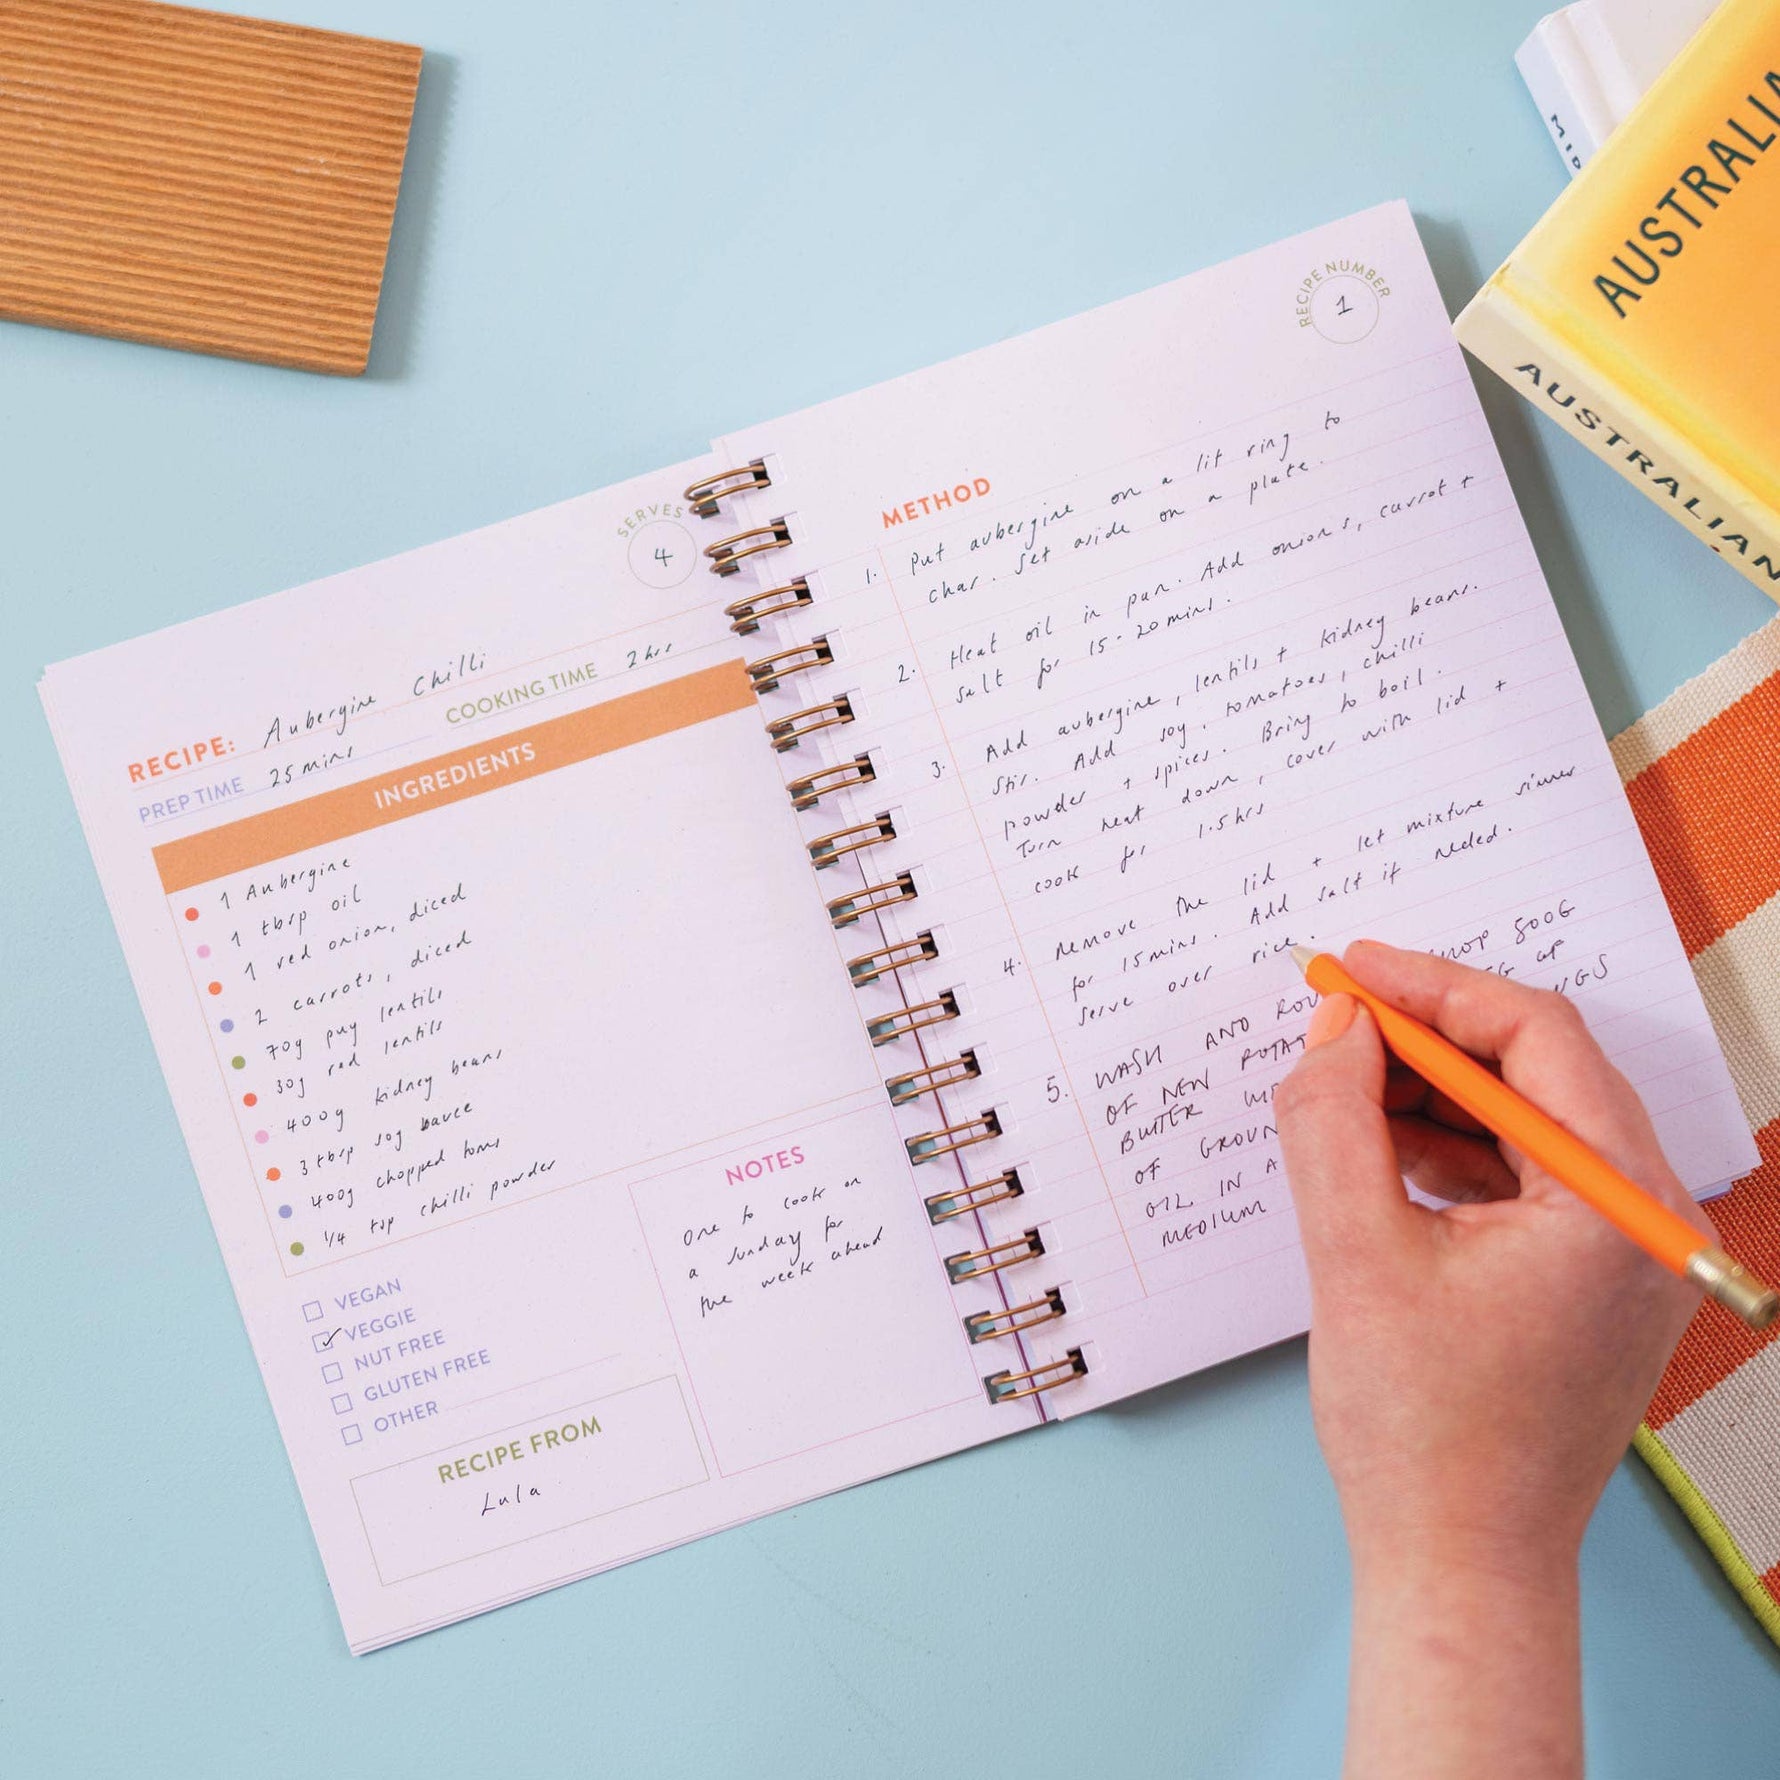 SERVES
4
RECIPE: Aubergine Chilli
PREP TIME 25 mins COOKING TIME 2 hrs
INGREDIENTS
1 Aubergine
1 tbsp oil
1 red onion, diced
2 carrots, diced
70g puy lentils
30g red lentils
400g kidney beans
3 tbsp soy sauce
400g chopped toms
1/4 tsp chilli powder
VEGAN
VEGGIE
NUT FREE
GLUTEN FREE
OTHER
RECIPE FROM
Lula
NOTES
One to cook on
a Sunday for
the week ahead
RECIPE NUMBER
1
METHOD
1. Put aubergine on a lit ring to
char. Set aside on a plate.
2. Heat oil in pan. Add onions, carrot +
salt for 15-20 mins.
3. Add aubergine, lentils + kidney beans.
Stir. Add soy, tomatoes, chilli
powder + spices. Bring to boil.
Turn heat down, cover with lid +
cook for 1.5 hrs
4. Remove the lid + let mixture simmer
for 15 mins. Add salt if needed.
Serve over rice.
5. WASH AND 500G
OF NEW OF
BUTTER
OF
OIL IN A
MEDIUM
AUSTRALIA
AUSTRALIAN